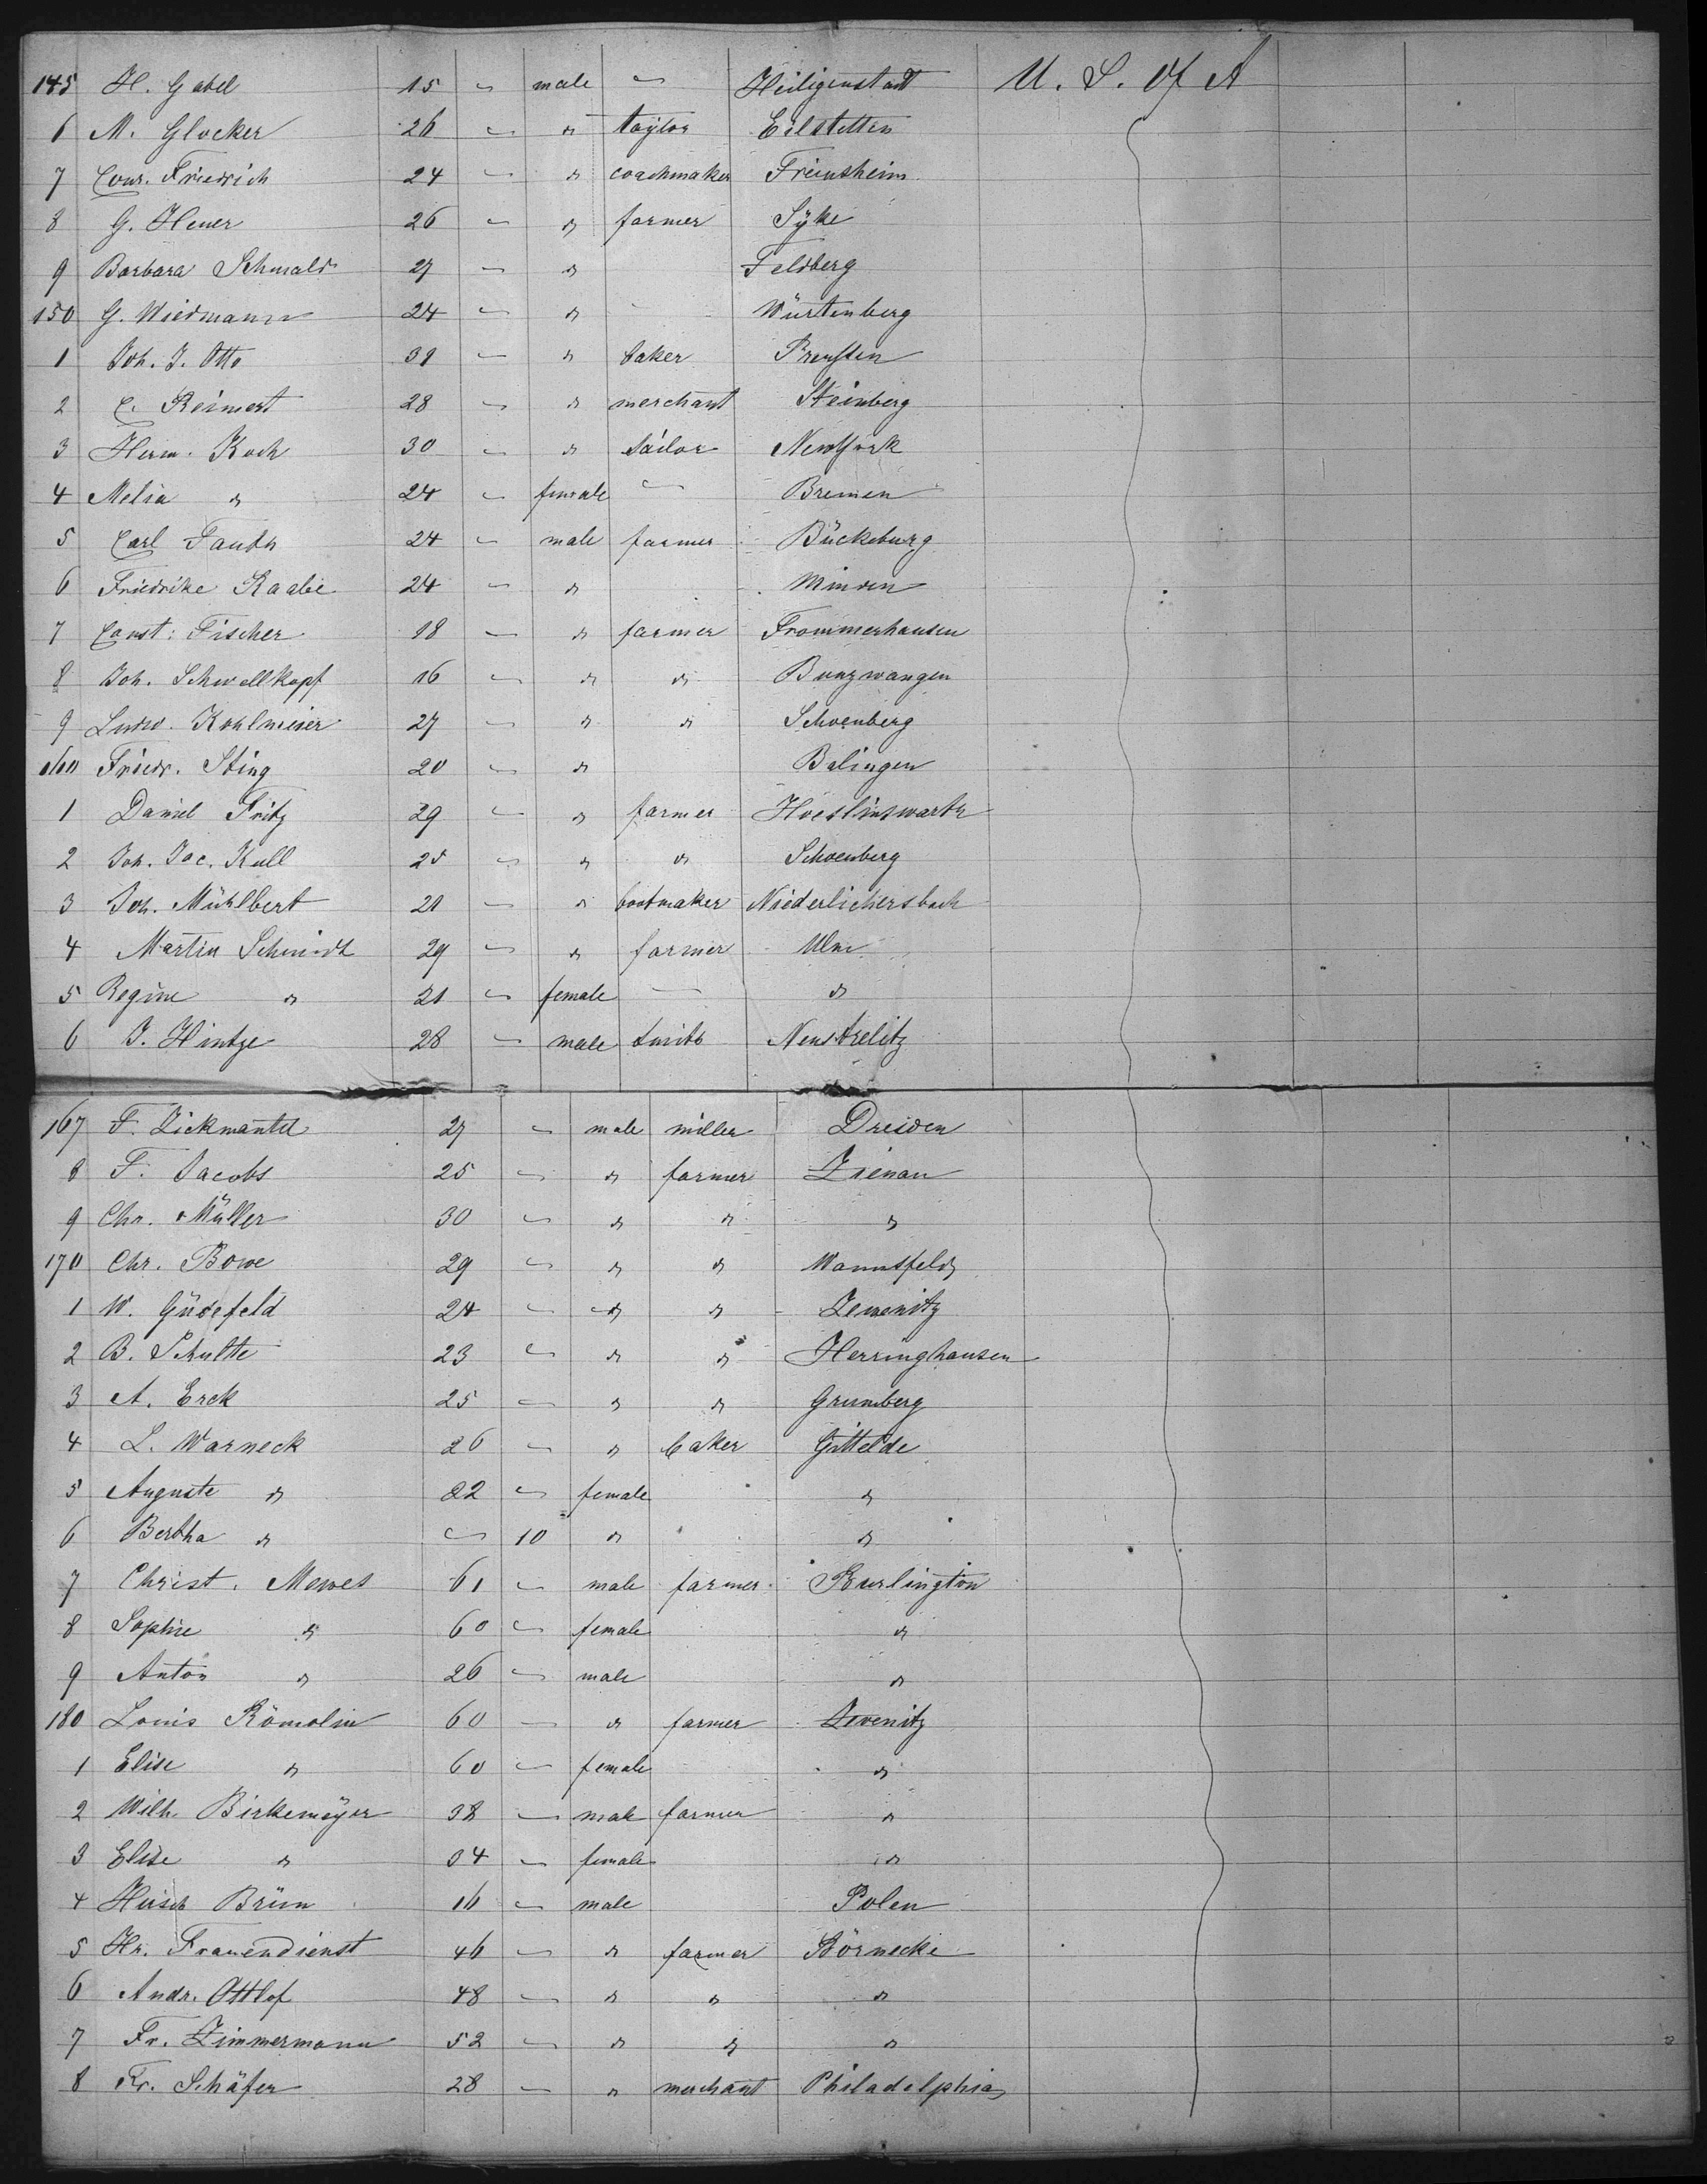 145 H. Gabel 15 " male " Heiligenstadt U. S. Of A
6 M. Glocker 26 " " taylor Eilstetten
7 Conr. Friedrich 24 " " coachmaker Freinsheim
8 G. Heuer 26 " " farmer Syke
9 Barbara Schmald 27 " " Feldberg
150 G. Wiedmann 24 " " Würtenberg
1 Joh. J. Otto 31 " " baker Preussen
2 C. Reimert 28 " " merchant Steinberg
3 Herm. Koch 30 " " sailor NewYork
4 Melia " 24 " female " Bremen
5 Carl Fauth 24 " male farmer Bückeburg
6 Friedrike Raabe 24 " " Minden
7 Const: Fischer 18 " " farmer Frommerhausen
8 Joh. Schwellkopf 16 " " " Bunzwangen
9 Ludw. Kohlmeier 27 " " " Schoenberg
160 Friedr. Sting 20 " " Balingen
1 Daniel Fritz 29 " " farmer Hoeslinswarth
2 Joh. Jac. Kull 25 " " " Schoenberg
3 Joh. Mühlbert 21 " " bootmaker Niederlichersbach
4 Martin Schmidt 29 " " farmer Ulm
5 Regine " 21 " female " "
6 J. Hintze 28 " male smith Neustrelitz
167 F. Zickmantel 27 " male miller Dresden
8 F. Jacobs 25 " " farmer Zienau
9 Chr. Müller 30 " " " "
170 Chr. Bowe 29 " " " Wannsfeld
1 W. Güdefeld 24 " " " Zewenitz
2 B. Schulte 23 " " " Herringhausen
3 A. Erck 25 " " " Grumberg
4 L. Warneck 26 " " baker Gittelde
5 Auguste " 22 " female "
6 Bertha " " 10 " "
7 Christ. Mewes 61 " male farmer Burlington
8 Sophie " 60 " female "
9 Anton " 26 " male "
180 Louis Römolin 60 " " farmer Zevenitz
1 Elise " 60 " female "
2 Wilh. Birkemeyer 38 " male farmer "
3 Elise " 34 " female "
4 Hirsch Brün 16 " male Polen
5 Hr. Frauendienst 46 " " farmer Börnecke
6 Andr. Ottlof 48 " " " "
7 Fr. Zimmermann 52 " " " "
8 Fr. Schäfer 28 " " merchant Philadelphia